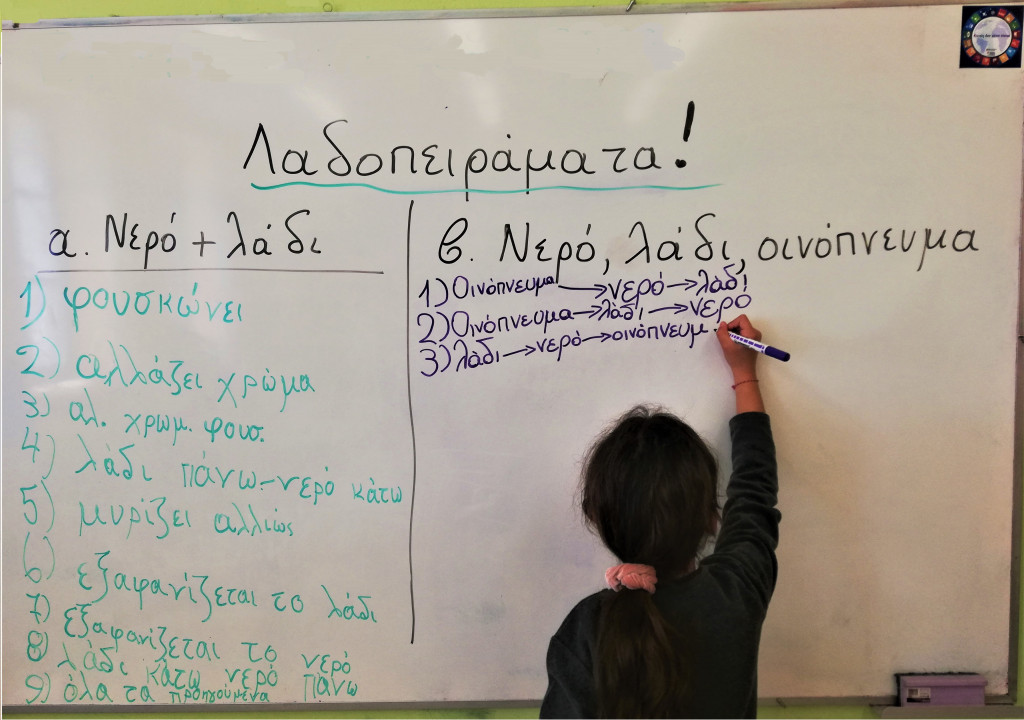 Λαδοπειράματα!
α. Νερό + λάδι
1) φουσκώνει
2) αλλάζει χρώμα
3) αλ. χρωμ. φουσ.
4) λάδι πάνω-νερό κάτω
5) μυρίζει αλλιώς
6) εξαφανίζεται το λάδι
7) εξαφανίζεται το νερό
8) λάδι κάτω νερό πάνω
9) όλα τα προηγούμενα
β. Νερό, λάδι, οινόπνευμα
1) Οινόπνευμα → νερό → λάδι
2) Οινόπνευμα → λάδι → νερό
3) λάδι → νερό → οινόπνευμ